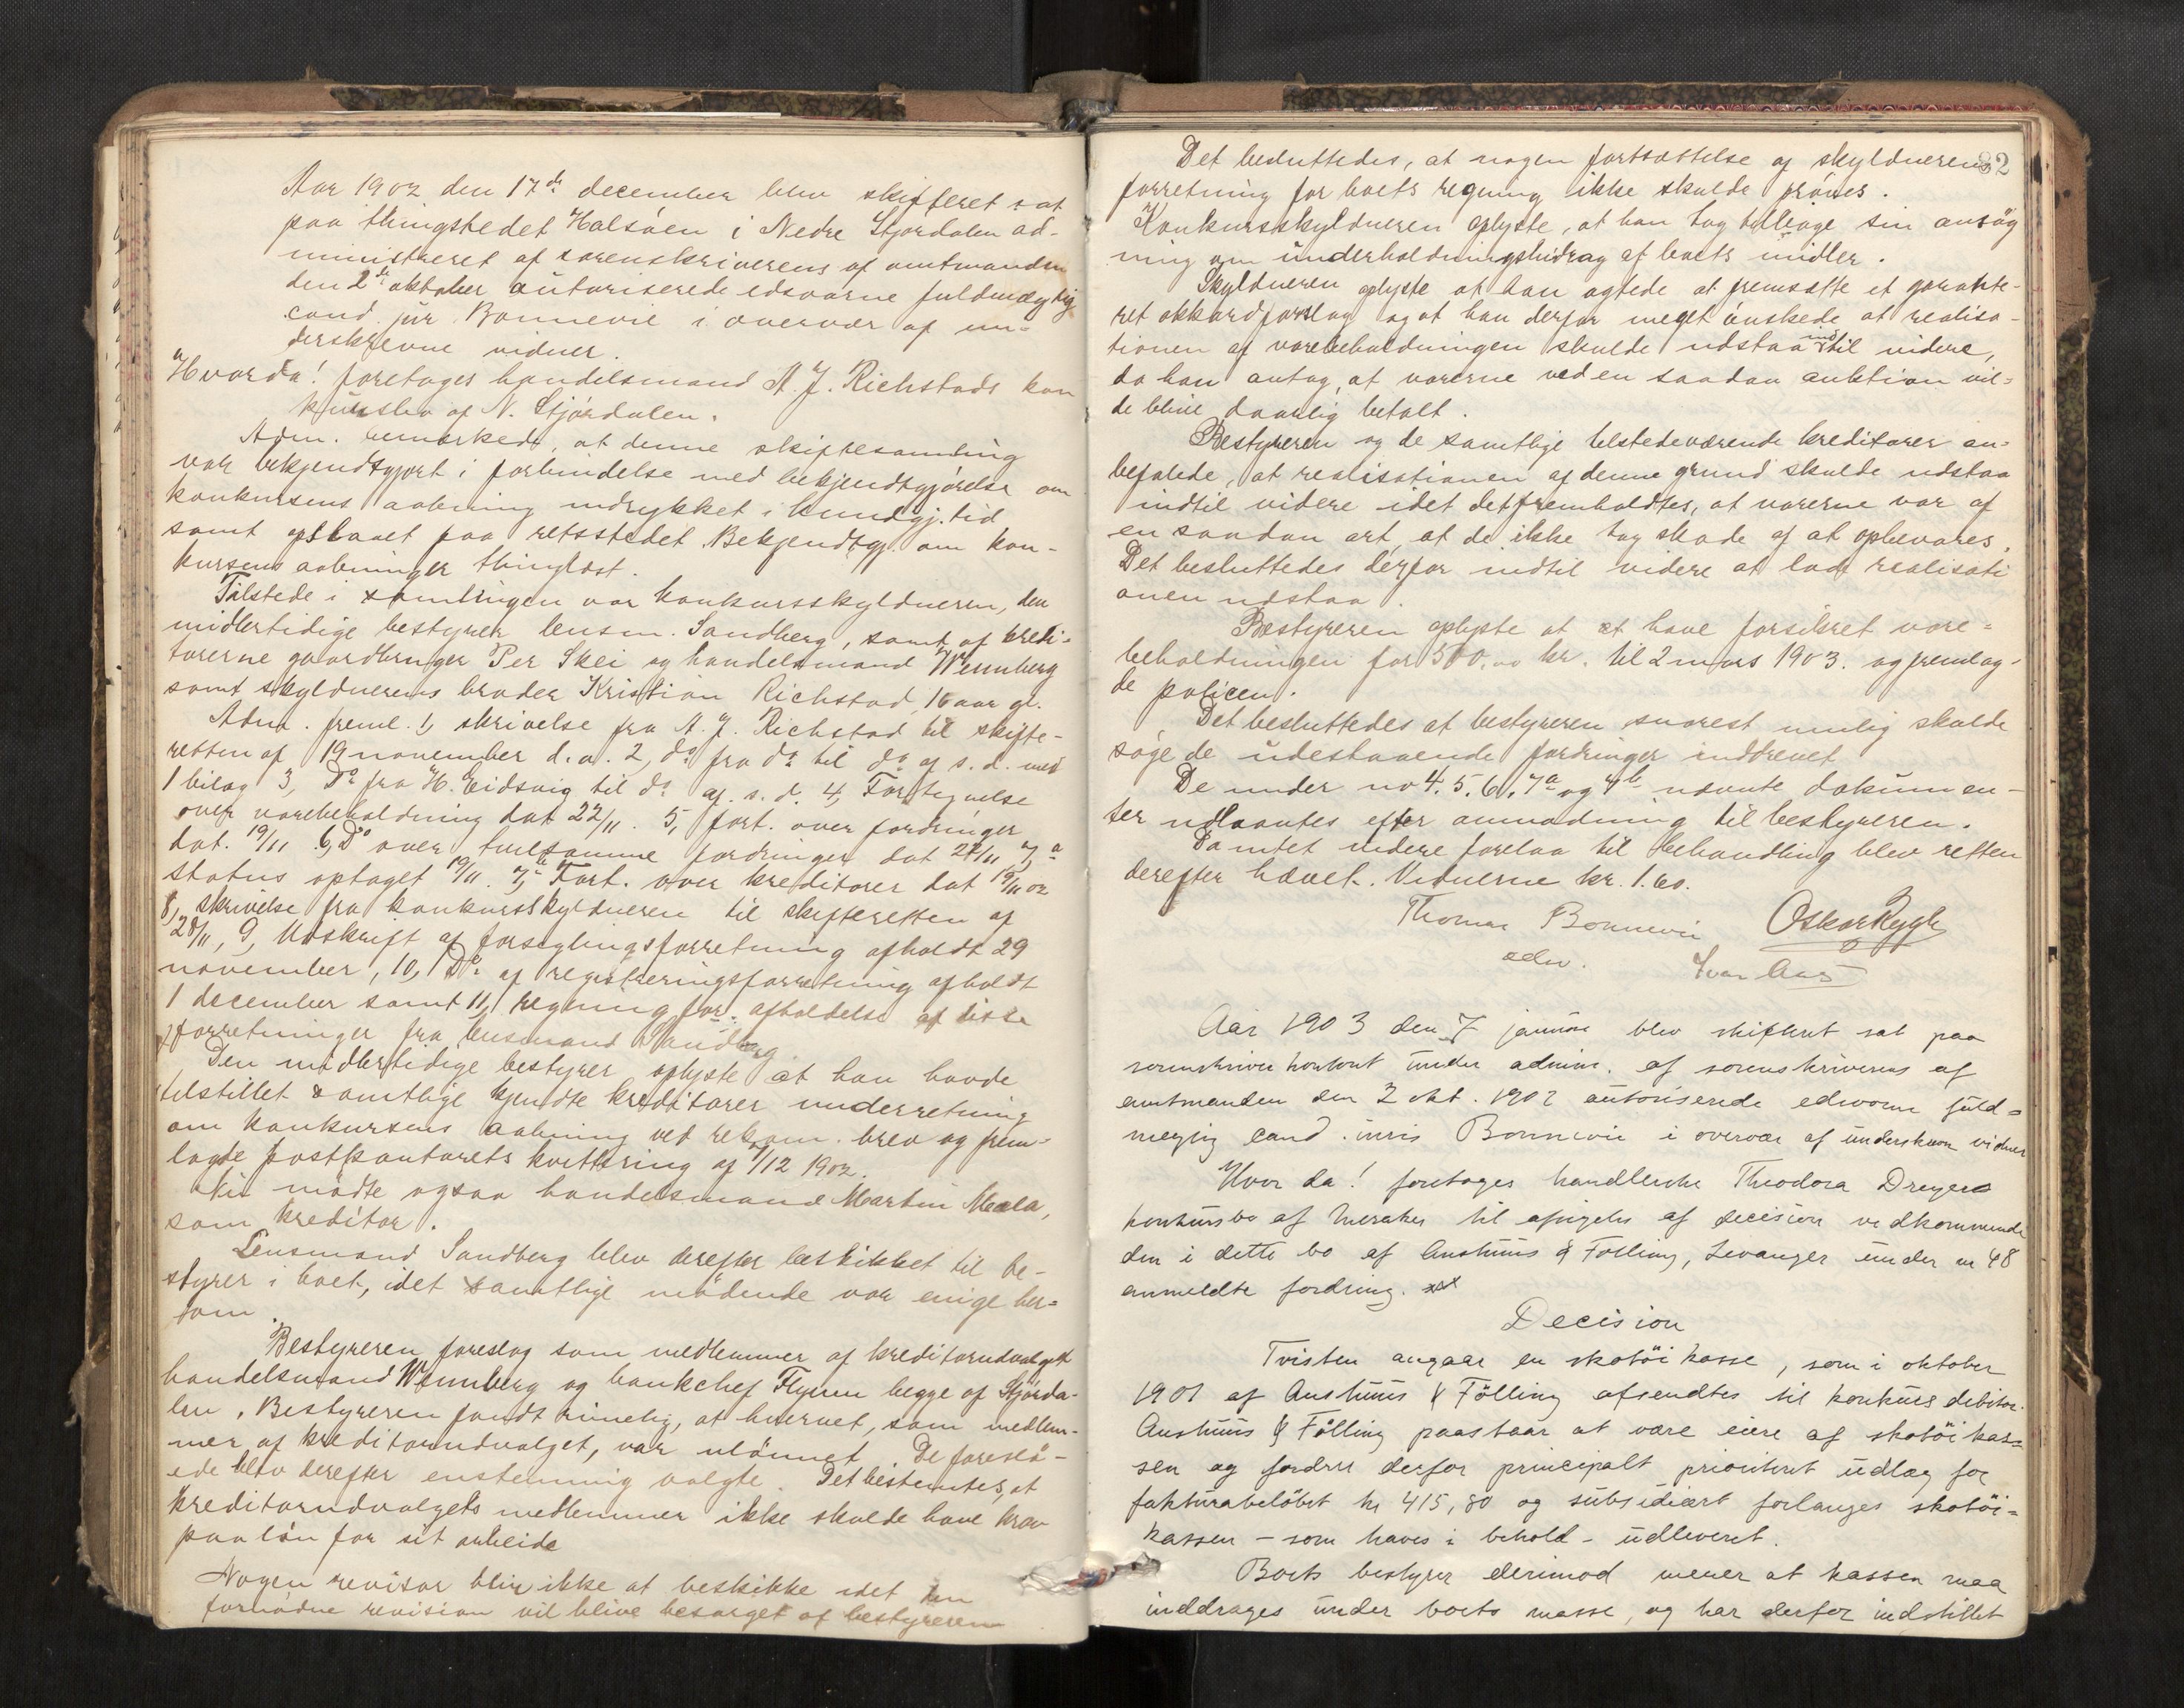 Aar 1902 den 17de december blev skifteret sat
paa thingstedet Halsöen i Nedre Stjørdalen ad-
ministreret af sorenskriverens af amtmanden
den 2de oktober autoriserede edsvorne fuldmægtig
cand. jur. Bonnevie i overvær af un-
derskrevne vidner.
Hvorda! foretages handelsmand A. J. Richstads kon
kursbo af N. Stjördalen.
Adm. bemærkede, at denne skiftesamling
var bekjendtgjort i forbindelse med bekjendtgjörelse om
konkursens aabning indrykket i kundgj.tid
samt opslaaet paa retsstedet. Bekjendtgj. om kon-
kursens aabninger thinglæst.
Tilstede i samlingen var konkursskyldneren, den
midlertidige bestyrer lensm. Sandberg, samt af kredi-
torerne gaardbruger Per Skei og handelsmand Wennberg
samt skyldnerens broder Kristian Richstad, 16 aar gl.
Adm. freml. 1, skrivelse fra A. J. Richstad til skifte-
retten af 19 november d. a. 2, do fra do til do af s. d. med
1 bilag 3, Do fra H. Eidsvig til do af s. d. 4, Fortegnelse
over varebeholdning dat 22/11. 5, fort. over fordringer
dat. 19/11 6, Do over tvilsomme fordringer dat 22/11 7, a
status optaget 19/11. 7, b Fort. over kreditorer dat 19/11 02
8, skrivelse fra konkursskyldneren til skifteretten af
28/11, 9, Udskrift af forseglingsforretning afholdt 29
november, 10, Do af registreringsforretning afholdt
1 december samt 11, regning for afholdelse af disse
forretninger fra lensmand Sandberg.
Den midlertidige bestyrer oplyste at han havde
tilstillet samtlige kjendte kreditorer underretning
om konkursens aabning ved rekom. brev og frem-
lagde postkontorets kvittering af /12 1902.
Nu mödte ogsaa handelsmand Martin Mæla,
som kreditor.
Lensmand Sandberg blev derefter beskikket til be-
styrer i boet, idet samtlige mödende var enige her-
om.
Bestyreren foreslog som medlemmer af kreditorudvalget
handelsmand Wennberg og bankchef Flyum begge af Stjørda-
len. Bestyreren fandt rimelig, at hvervet, som medlem-
mer af kreditorudvalget, var ulönnet. De foreslå-
ede blev derefter enstemmig valgte. Det bestemtes, at
kreditorudvalgets medlemmer ikke skulde have krav
paa lön for sit arbeide
Nogen revisor blir ikke at beskikke idet den
fornödne revision vil blive besörget af bestyreren
82
Det besluttedes, at nogen fortsættelse af skyldnerens
forretning for boets regning ikke skulde pröves.
Konkursskyldneren oplyste, at han tog tilbage sin ansög
ning om underholdningsbidrag af boets midler.
Skyldneren oplyste at han agtede at fremsætte et garante-
ret akkordforslag og at han derfor meget önskede at realisa-
tionen af varebeholdningen skulde udstaa indtil videre,
da han antog, at varerne ved en saadan auktion vil-
de blive daarlig betalt.
Bestyreren og de samtlige tilstedeværende kreditorer an-
befalede, at realisationen af denne grund skulde udstaa
indtil videre idet det fremholdtes, at varerne var af
en saadan art at de ikke tog skade af at opbevares.
Det besluttedes derfor indtil videre at lade realisati
onen udstaa.
Bestyreren oplyste at at have forsikret vare-
beholdningen for 500,00 kr. til 2 mars 1903. og fremlag-
de policen.
Det besluttedes at bestyreren snarest mulig skulde
söge de udestaaende fordringer inddrevet
De under no 4. 5. 6. 7a og 7b nævnte dokumen-
ter udlaantes efter anmodning til bestyreren.
Da intet videre forelaa til behandling blev retten
derefter hævet. Vidnerne kr. 1.60.
Thomas Bonnevie Oskar Rygh
edsv. Ivar Aas
Aar 1903 den 7 januar blev skifteret sat paa
sorenskriverkontoret under admin. af sorenskriverens af
amtmanden den 2 okt. 1902 autoriserede edsvorne fuld-
mægtig cand. juris Bonnevie i overvær af underskrevne vidner
Hvor da! foretages handlerske Theodora Dreyers
konkursbo af Meraker til afsigelse af decision vedkommende
den i dette bo af Austnus & Fölling, Levanger under no 48
anmeldte fordring.
Decision
Tvisten angaar en skotöikasse, som i oktober
1901 af Austnus & Fölling afsendtes til konkursdebitor.
Austnus & Fölling paastaar at være eiere af skotöikas-
sen og fordrer derfor principalt prioriteret udlæg for
fakturabelöbet kr 415,80 og subsidiært forlanges skotöi-
kassen – som haves i behold – udleveret.
Boets bestyrer derimod mener at kassen maa
inddrages under boets masse, og har derfor indstillet